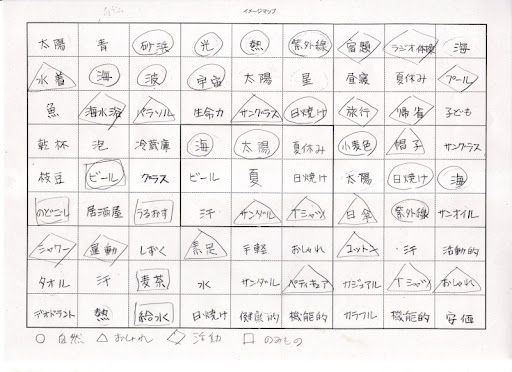 イメージマップ
太陽 青 砂浜 光 熱 紫外線 宿題 ラジオ体操 海
水着 海 波 宇宙 太陽 星 昼寝 夏休み プール
魚 海水浴 パラソル 生命力 サングラス 日焼け 旅行 帰省 子ども
乾杯 泡 冷蔵庫 海 太陽 夏休み 小麦色 帽子 サングラス
枝豆 ビール グラス ビール 夏 日焼け 太陽 日焼け 海
のどごし 居酒屋 うるおす 汗 サンダル Tシャツ 日傘 紫外線 サンオイル
シャワー 運動 しずく 素足 手軽 おしゃれ コットン 汗 活動的
タオル 汗 麦茶 水 サンダル ペディキュア カジュアル Tシャツ おしゃれ
デオドラント 熱 給水 日焼け 健康的 機能的 カラフル 機能的 安価
○ 自然 △ おしゃれ ◇ 活動 □ のみもの